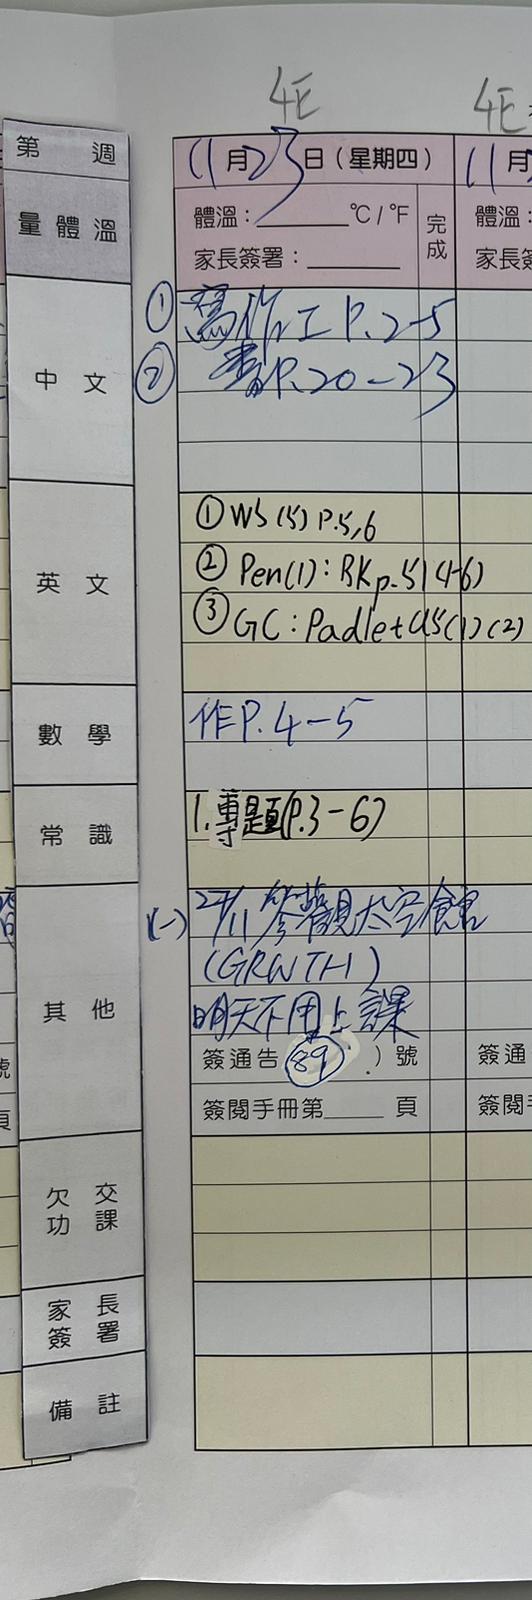 4E
4E
第 週
11月23日(星期四)
11月
量體溫
體溫：______°C/°F
完成
體溫：
家長簽署：______
家長簽
中文
① 寫作工P.2-5
② 書P.20-23
英文
① WS(5) P.5,6
② Pen(1): RKp.51(4-6)
③ GC: Padlet U5(1)(2)
數學
作P.4-5
常識
1.專題(P.3-6)
其他
(一) 27/11參觀太空館
(GRWTH)
明天不用上課
簽通告(89)號
簽通
號
簽閱手冊第____頁
簽閱手
頁
欠交
功課
家長
簽署
備註